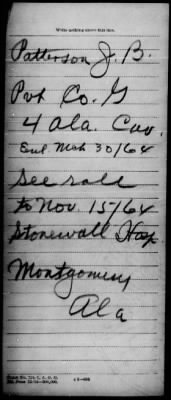 Write nothing above this line.
Patterson J. B.
Pvt Co. G
4 Ala. Cav.
Enl Mch 30/64
see roll
to Nov. 15/64
Stonewall Hosp
Montgomery
Ala